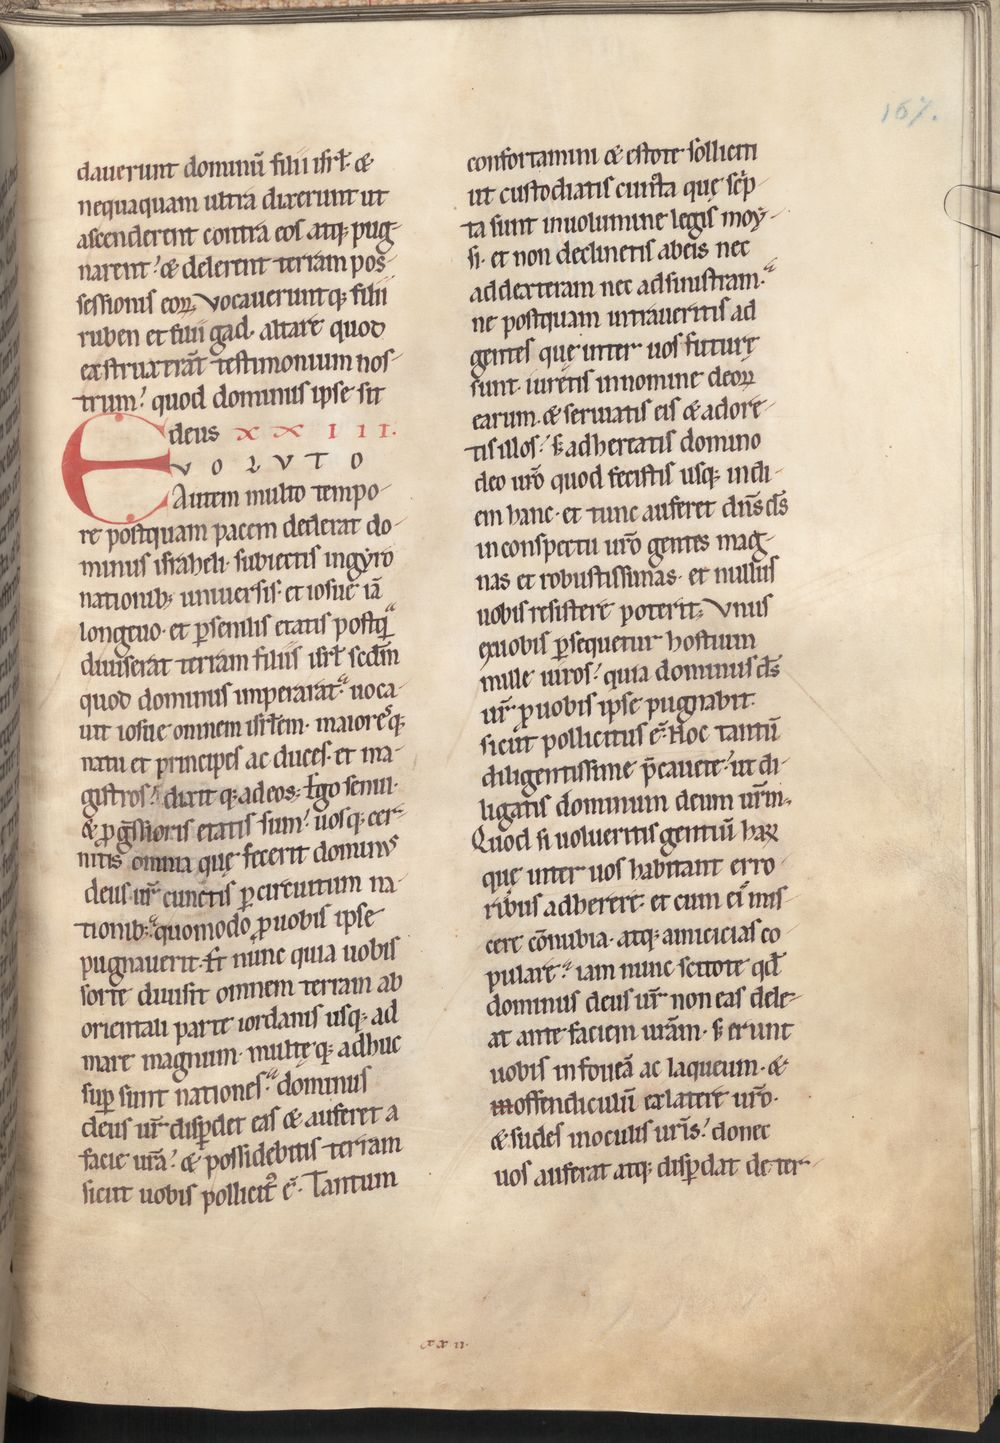 167.
dauerunt dominũ filii isrł· &
nequaquam ultra dixerunt ut
ascenderent contra eos atq; pug-
narent? & delerent terram pos-
sessionis eoꝝ, Vocaueruntq; filii
ruben et filii gad· altare quod
exstruxerãt testimonium nos-
trum? quod dominus ipse sit
deus XXIIII.
EVOLVTO
Autem multo tempo-
re postquam pacem dederat do-
minus israheli· subiectis ingyro
nationib; uniuersis· et iosue iã
longeuo· et ꝑsenilis etatis postꝗ̃
diuiserat terram filiis isrł scdm̃
quod dominus imperarat· uoca-
uit iosue omnem isrłem· maioresq;
natu et principes ac duces· et ma-
gistros? dixit q; adeos; Ego senui·
& ꝓgr̃ssioris etatis sum? uosq; cer-
nitis omnia quę fecerit dominus
deus ur̃ cunctis ꝑcircuitum na-
tionib; quomodo ꝓuobis ipse
pugnauerit· Et nunc quia uobis
sorte diuisit omnem terram ab
orientali parte iordanis usq; ad
mare magnum· multęq; adhuc
suꝑ sunt nationes· dominus
deus ur̃ disꝑdet eas & auferet a
facie ur̃a? & possidebitis terram
sicut uobis pollicit᷒ ẽ· Tantum
confortamini & estote solliciti
ut custodiatis cuncta quę scp̃-
ta sunt inuolumine legis moẏ-
si· et non declinetis abeis nec
addexteram nec adsinistram·
ne postquam intraueritis ad
gentes quę inter uos futurę
sunt· iuretis innomine deoꝝ
earum· & seruiatis eis & adore-
tis illos? s; adhereatis domino
deo uro᷒ quod fecistis usq; indi-
em hanc· et tunc auferet dñs ds̃
inconspectu ur̃o gentes mag-
nas et robustissimas· et nullus
uobis resistere poterit; Vnus
exuobis ꝑsequetur hostium
mille uiros? quia dominus ds̃
ur̃ ꝓuobis ipse pugnabit·
sicut pollicitus ẽ· Hoc tantũ
diligentissime p̃cauete? ut di-
ligatis dominum deum ur̃m·
Quod si uolueritis gentiũ haꝝ
quę inter uos habitant erro-
ribus adherere· et cum eis̃ mis-
cere cõnubia· atq; amicicias co-
pulare? iam nunc scitote qđ
dominus deus ur̃ non eas dele-
at ante faciem ur̃am· s; erunt
uobis infoueã ac laqueum· &
inoffendiculũ exlatere ur̃o·
& sudes inoculis ur̃is? donec
uos auferat atq; disꝑdat de ter-
xxii·